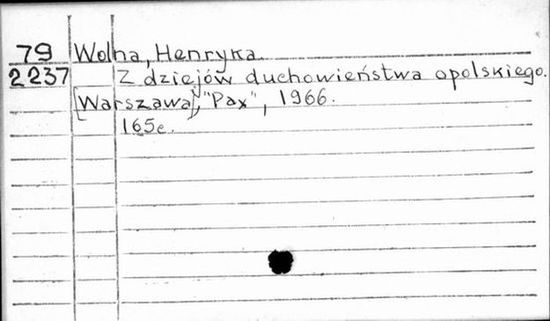 79 Wolna, Henryka
2237 Z dziejów duchowieństwa opolskiego.
[Warszawa], "Pax", 1966.
165 e.